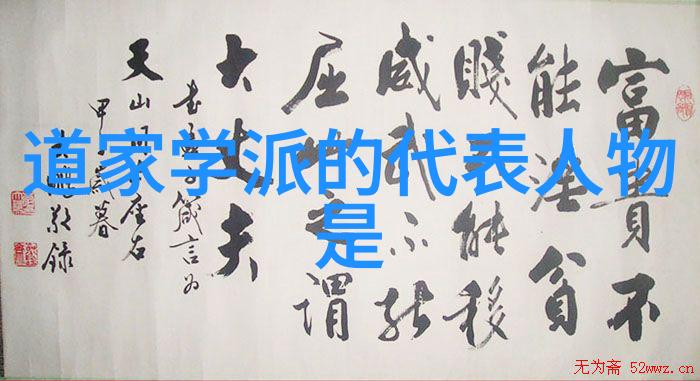 道家学派的代表人物
是
富貴不
能淫貧
賤不能移
威武不能
屈此之謂
大丈夫
書孟子箴言为
天山座右
甲歲暮
敬録
无为斋 52wwz.cn